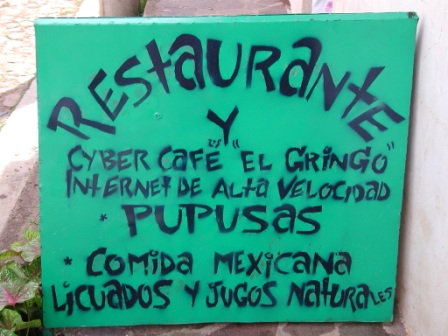 RESTAURANTE
Y
CYBER CAFE "EL GRINGO"
INTERNET DE ALTA VELOCIDAD
* PUPUSAS
* COMIDA MEXICANA
LICUADOS Y JUGOS NATURALES